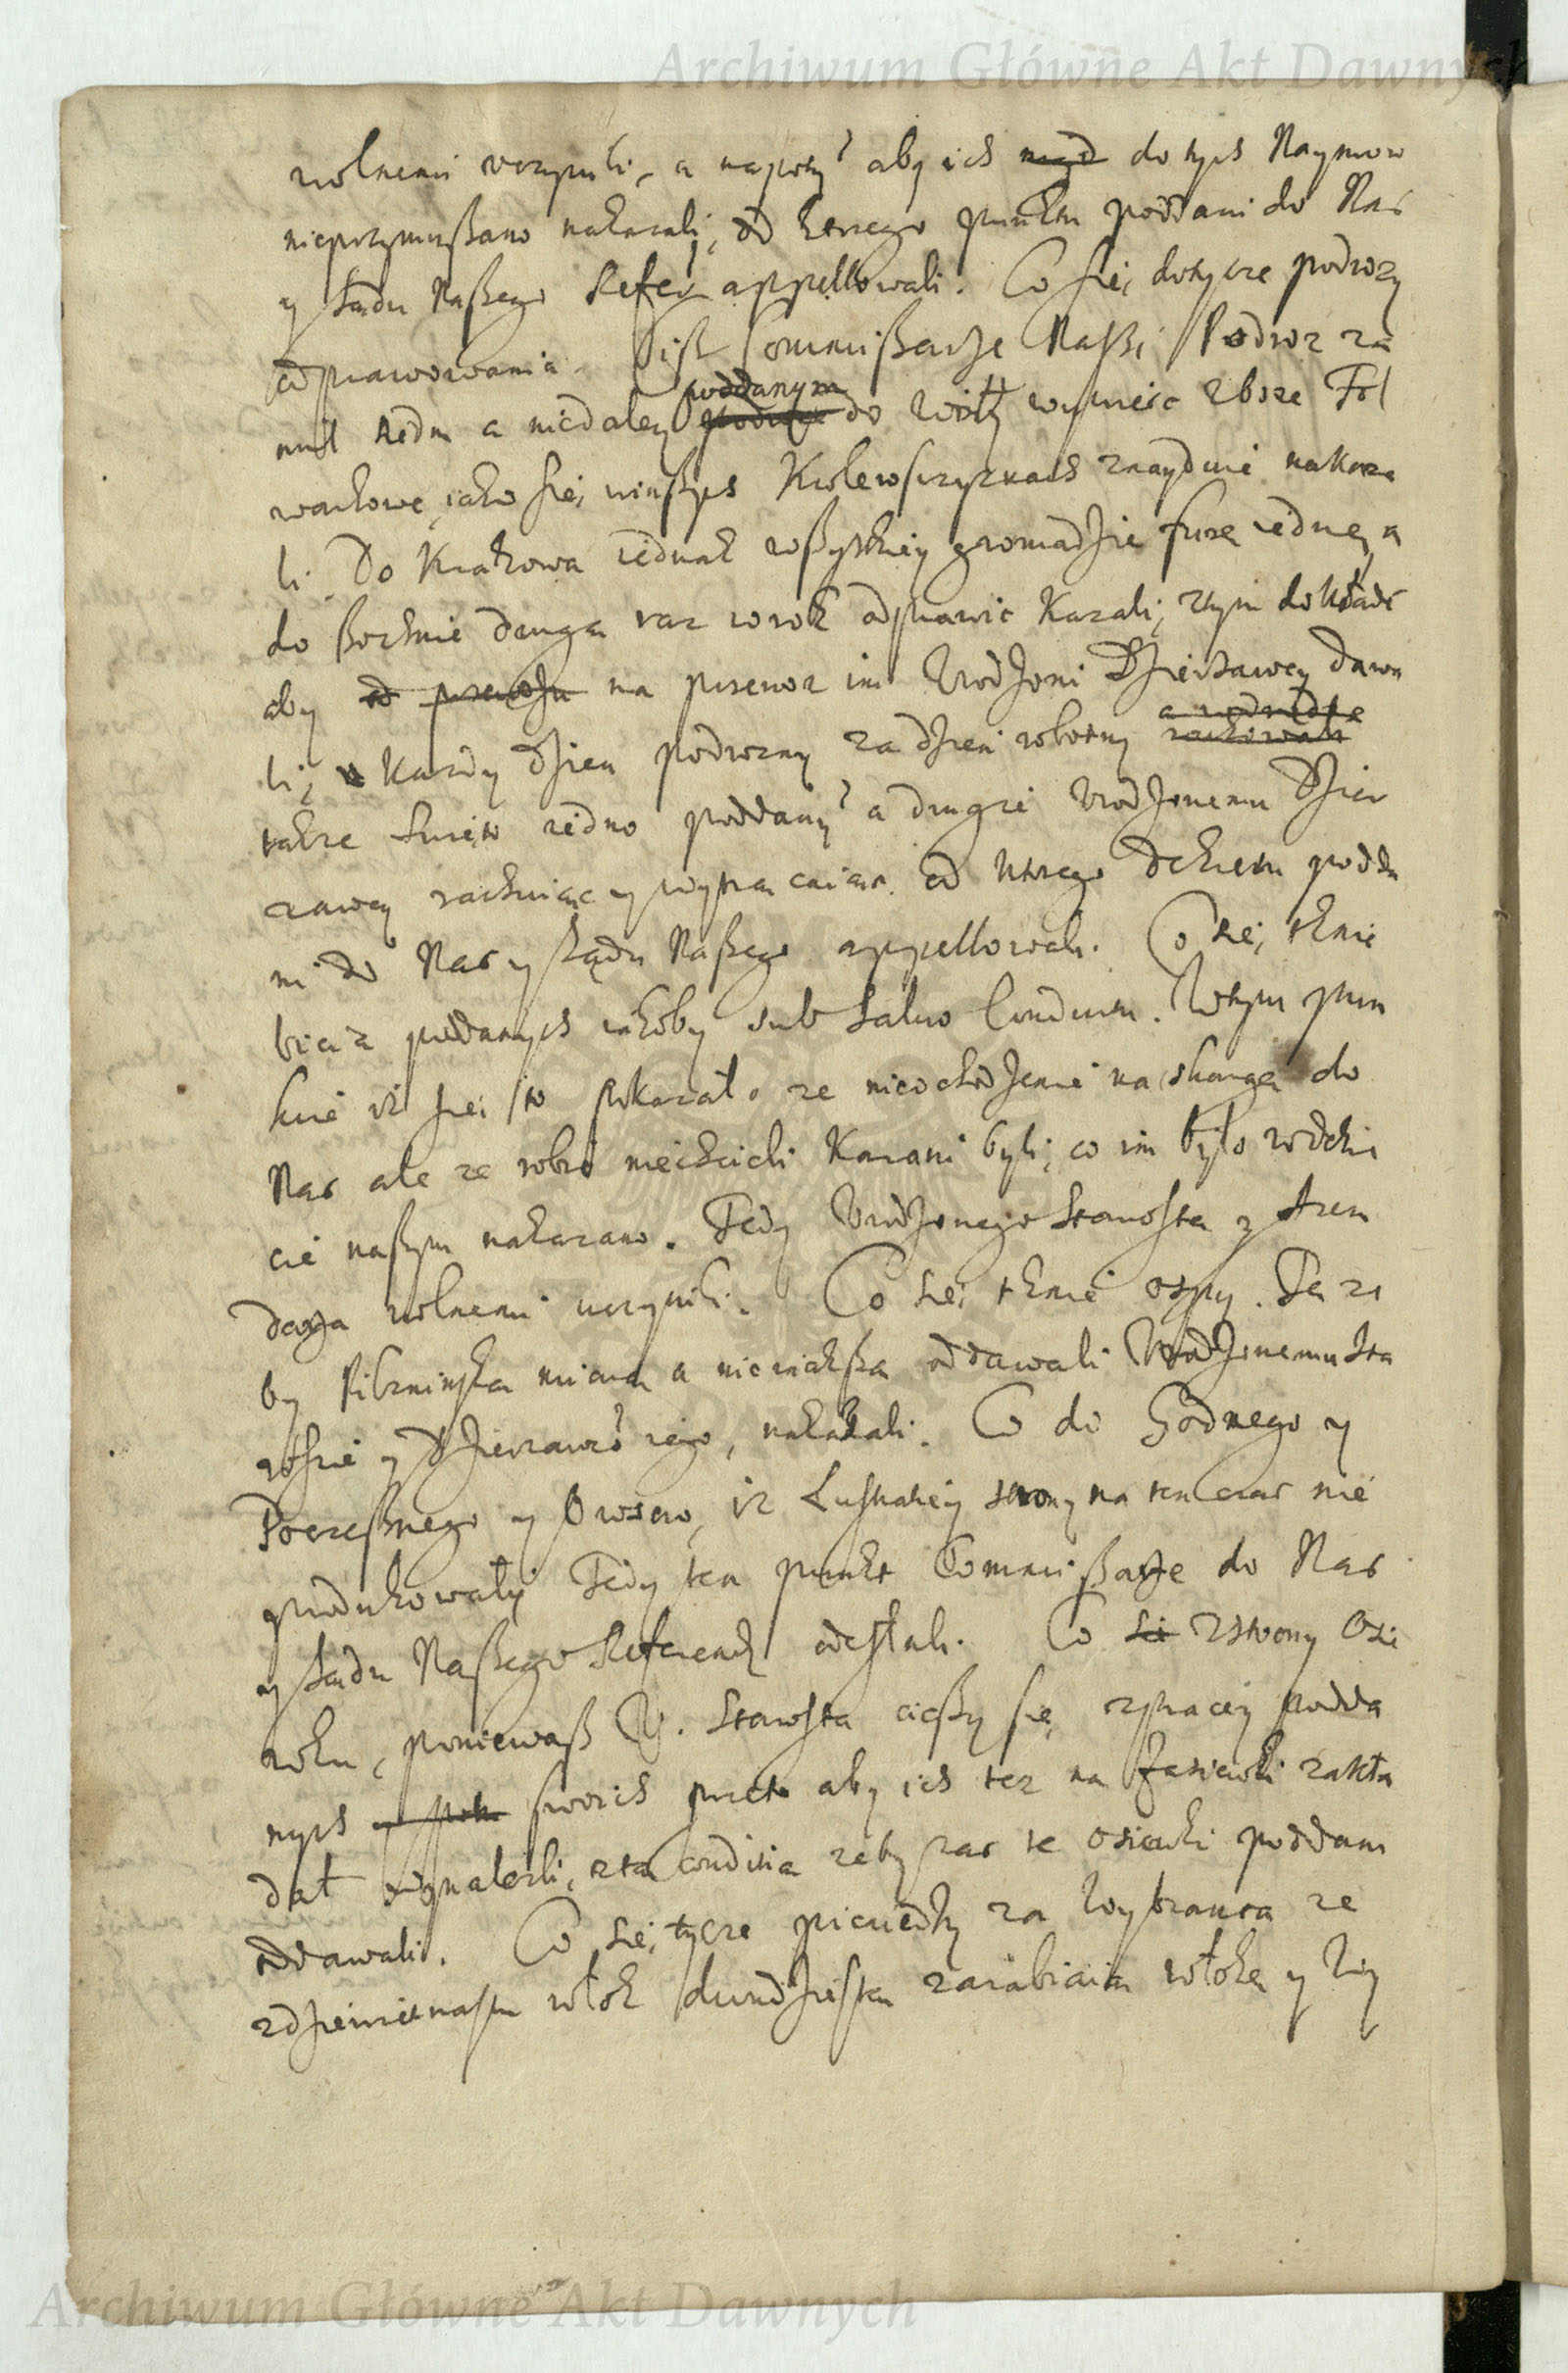 Archiwum Główne Akt Dawnych
wolnemi uczynili, a napotÿ aby ich do tych Naymow
nieprzymuszano nakazali, od ktorego punktu poddani do Nas
y Sądu Naszego Refer appellowali. Co się dotycze podrozy
odprawowania. Ciż Commissarze Naszi Podroz za
mil siedm a niedaley poddanym do Wisły wywiesc zboze Fol
warkowe, iako się winszych Krolewszczyznach znayduie nakaza
li. Do Krakowa iednak wszystkiey gromadzie furę iednę, a
do Bochnie drugą raz w rok odprawic kazali, z tym dokładem
aby od przewozu na przewoz im Urodzoni Dzierzawcy dawa
li, kazdy dzien podrozny za dzien robotny rachowali
takze Swięto iedno poddanÿ a drugie Urodzonemu Dzier
zawcy rachuiąc y wytrącaiąc. od ktorego Dekretu podda
ni do Nas y Sądu Naszego appellowali. Co się tknie
bicia poddanych iakoby sub Salvo Conductu. W tym pun
kcie iz się to pokazało ze nie o chodzenie na skargę do
Nas ale ze robic niechcieli karani byli, co im było w Dekre
cie naszym nakazano. Tedy Urodzonego Starostę y Aren
darza wolnemi uczynili. Co się tknie ospy. Tę ze
by Pilznińską miarą a niewiększą oddawali Urodzonemu Sta
roscie y Dzierzawcÿ iego, nakazali. Co do Godnego y
Poczesnego y Owsow, iz Lustratiey strony na ten czas nie
produkowały Tedy ten punkt Commissarze do Nas
y Sądu Naszego Referend odesłali. Co się z strony Osi
roku, poniewasz U. Starosta cieszy się z pracey podda
nych swoich przeto aby ich tez na Zasiewki zakła
dał wynalezli, z tą conditią zeby zas te osiewki poddani
oddawali. Co się tycze pieniędzy za Wybranca ze
z dziewiętnastu włok dwudziestą zarabiaią włokę y Wy
Archiwum Główne Akt Dawnych